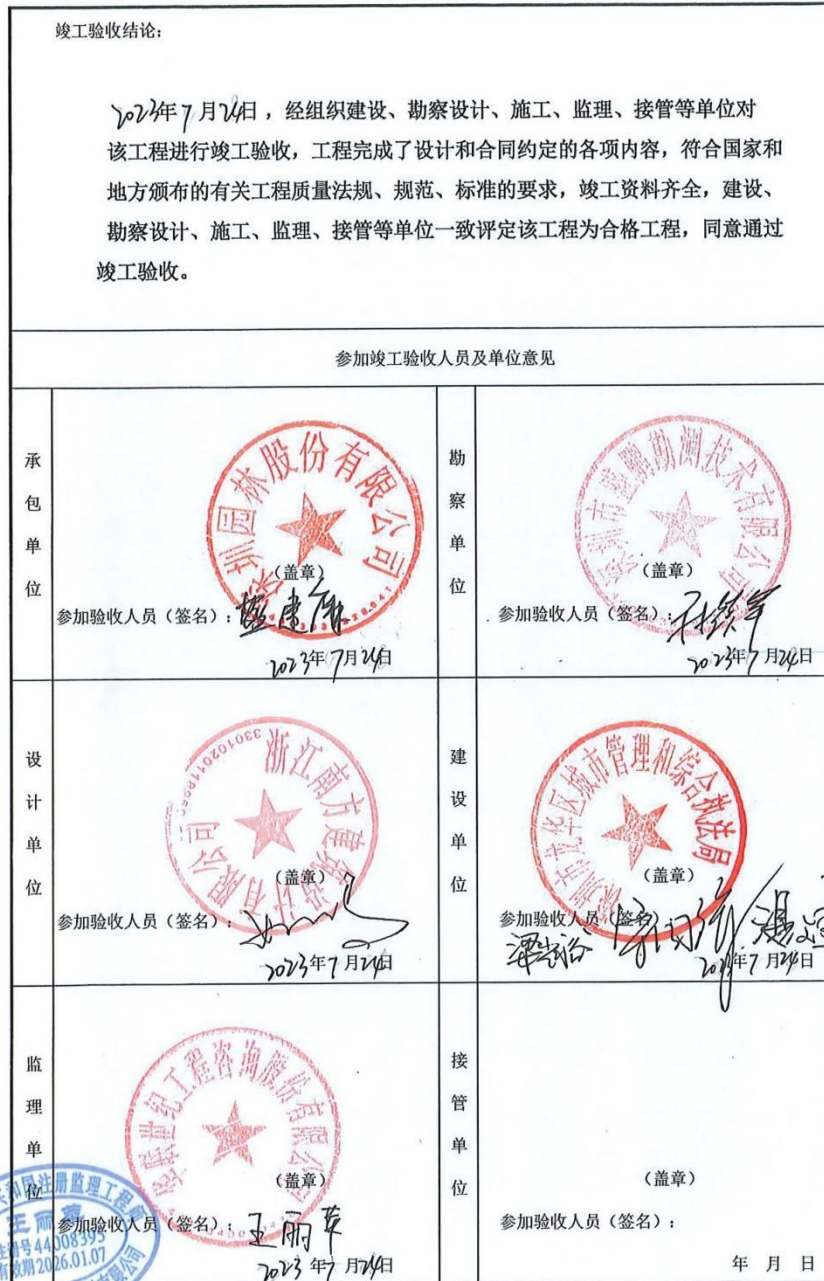 竣工验收结论:
2023年7月24日，经组织建设、勘察设计、施工、监理、接管等单位对
该工程进行竣工验收，工程完成了设计和合同约定的各项内容，符合国家和
地方颁布的有关工程质量法规、规范、标准的要求，竣工资料齐全，建设、
勘察设计、施工、监理、接管等单位一致评定该工程为合格工程，同意通过
竣工验收。
参加竣工验收人员及单位意见
承包单位
深圳园林股份有限公司
（盖章）
参加验收人员（签名）:
2023年7月24日
勘察单位
勘测技术有限公司
（盖章）
参加验收人员（签名）:
2023年7月24日
设计单位
浙江南方建筑设计有限公司
（盖章）
参加验收人员（签名）:
2023年7月24日
建设单位
深圳市龙华区城市管理和综合执法局
（盖章）
参加验收人员（签名）
2023年7月24日
监理单位
世纪工程咨询股份有限公司
（盖章）
参加验收人员（签名）: 王丽苹
2023年7月24日
注册监理工程师
44008395
2026.01.07
接管单位
（盖章）
参加验收人员（签名）:
年 月 日